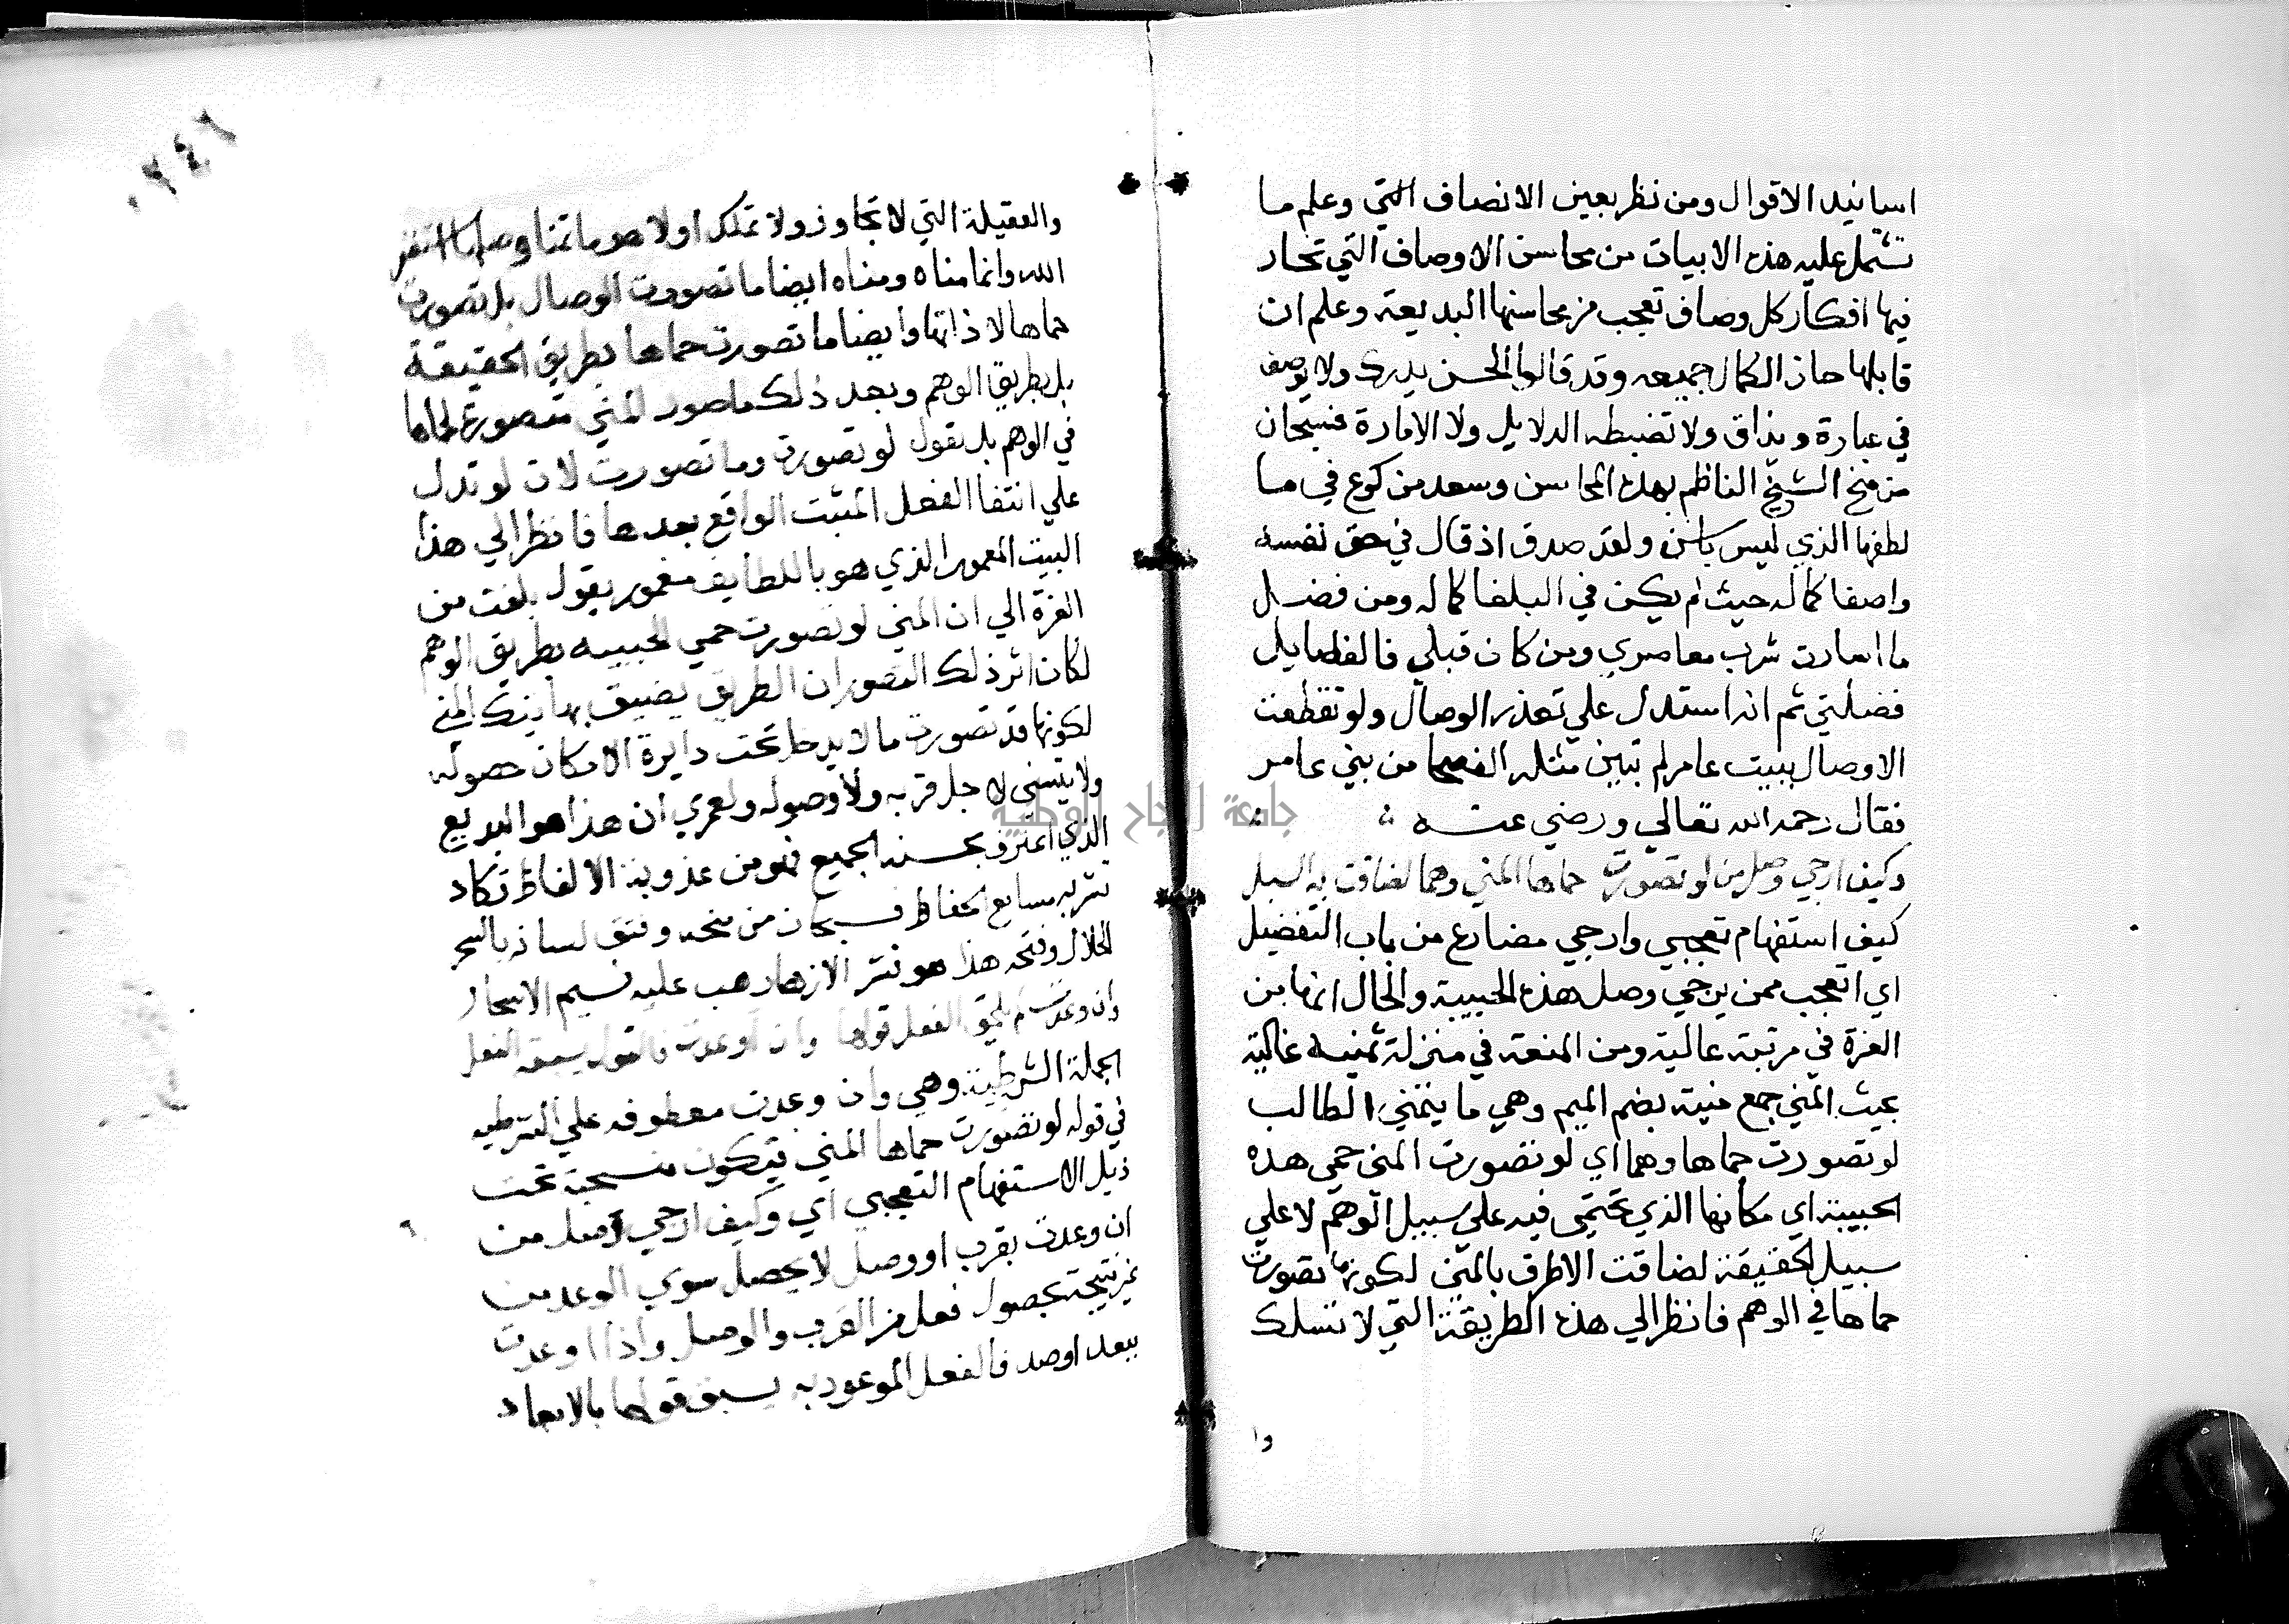 اسانيد الاقوال ومن نظر بعين الانصاف التي وعلم ما
تشتمل عليه هذه الابيات من محاسن الاوصاف التي تحار
فيها افكار كل وصاف تعجب من محاسنها البديعة وعلم ان
قايلها حاز الكمال جميعه وقد قالوا الحسن يدرك ولا يوصف
في عبارة ويذاق ولا تضبطه الدلايل ولا الامارة فسبحان
من منح الشيخ الناظم بهذه المحاسن وسعد من كرع في ما
لطفها الذي ليس باسن ولقد صدق اذ قال في حق نفسه
واصفا كماله حيث لم يكن في البلغا كماله ومن فضل
ما اسارت شرب معاصري ومن كان قبلي فالفضايل
فضلتي ثم انه استدل علي تعذر الوصال ولو تقطعت
الاوصال ببيت عامر لم تبين مثله الفصحا من بني عامر
فقال رحمه الله تعالي ورضي عنه
وكيف ارجي وصل من لو تصورت حماها المني وهما لضاقت به السبل
كيف استفهام تعجبي وارجي مضارع من باب التفضيل
اي اتعجب ممن يرجي وصل هذه الحبيبة والحال انها من
العزة في مرتبة عالية ومن المنعة في منزلة ثمينه غالية
بحيث المني جمع منية بضم الميم وهي ما يتمني الطالب
لو تصورت حماها وهما اي لو تصورت المني حمي هذه
الحبيبة اي مكانها الذي تحتمي فيه علي سبيل الوهم لا علي
سبيل الحقيقة لضاقت الاطرق بالمني لكونها تصورت
حماها في الوهم فانظر الي هذه الطريقة التي لا تسلك
وا
والعقيلة التي لا تجاوز ولا تملك اولا هو ما تمنا وصلها
الله وانما مناه ومناه ايضا ما تصورت الوصال بل تصورت
حماها لا ذاتها وايضا ما تصورت حماها بطريق الحقيقة
بل بطريق الوهم وبعد ذلك ما صور المني متصورة لحماها
في الوهم بل يقول لو تصورت وما تصورت لان لو تدل
علي انتفا الفعل المثبت الواقع بعدها فانظر الي هذا
البيت المعمور الذي هو باللطايف مغمور يقول بلغت من
العزة الي ان المني لو تصورت حمي الحبيبه بطريق الوهم
لكان اثر ذلك التصور ان الطريق يضيق بهاتيك المني
لكونها قد تصورت ما لا يدخل تحت دايرة الامكان حصوله
ولا يتسني لاجل قربه ولا وصوله ولعمري ان هذا هو البديع
الذي اعترف بحسنه الجميع فهو من عذوبة الالفاظ تكاد
تشربه مسامع الحفاظ فسبحان من منحه وفتق لسانه بالسحر
الحلال وفتحه هذا هو نثر الازهار هب عليه نسيم الاسحار
وان وعدت لم يلحق الفعل قولها وان اوعدت فالقول يسبقه الفعل
الجملة الشرطية وهي وان وعدت معطوفه علي الشرطيه
في قوله لو تصورت حماها المني فيكون منسحبة تحت
ذيل الاستفهام التعجبي اي وكيف ارجي وصل من
ان وعدت بقرب او وصل لا يحصل سوي الوعد من
غير نتيجة بحصول فعل من القرب والوصل واذا اوعدت
ببعد او صد فالفعل الموعود به يسبق قولها بالابعاد